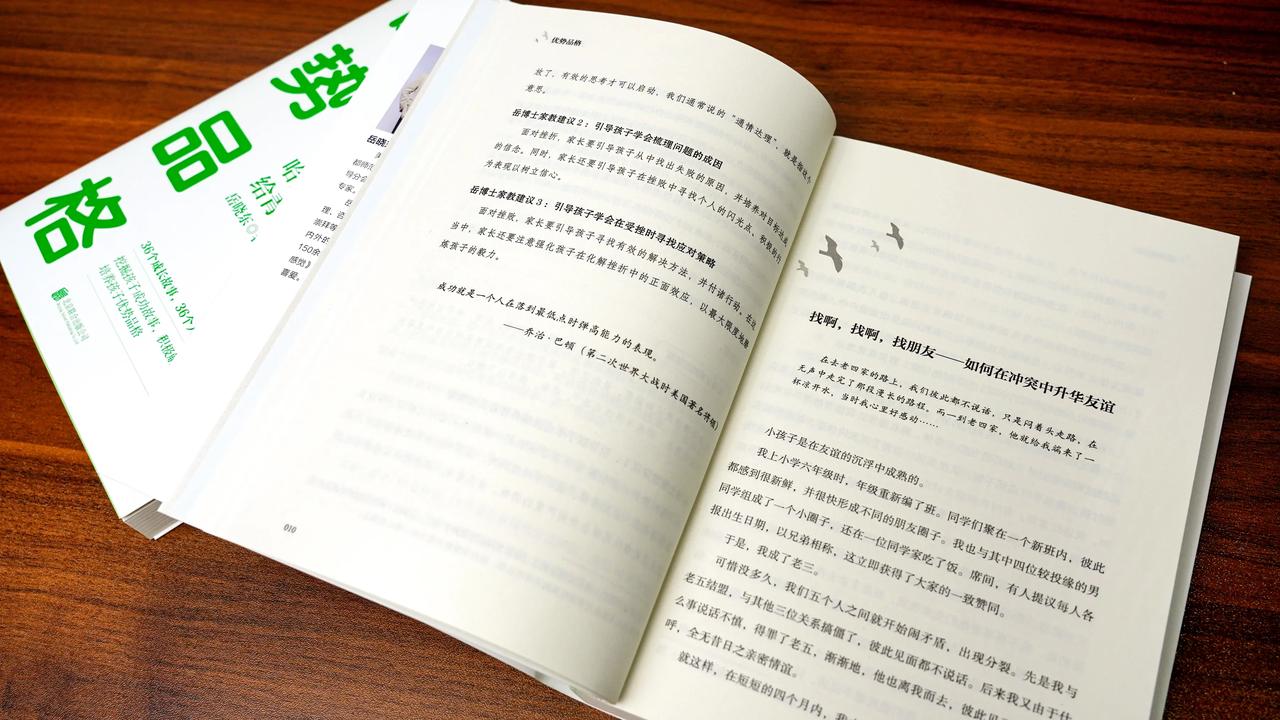 势
品
格
给
岳晓东◎
36个成长故事，36个
挖掘孩子成功故事，积极
培养孩子优势品格
北京联合出版公司
岳晓
都师范
导分会
专家。
理、咨
崇拜等
内外的
150余
感觉》
喜爱。
优势品格
放了，有效的思考才可以启动，我们通常说的“通情达理”，就是指这个
意思。
岳博士家教建议2：引导孩子学会梳理问题的成因
面对挫折，家长要引导孩子从中找出失败的原因，并培养对目标达成
的信念。同时，家长还要引导孩子在挫败中寻找个人的闪光点、积极的行
为表现以树立信心。
岳博士家教建议3：引导孩子学会在受挫时寻找应对策略
面对挫败，家长要引导孩子寻找有效的解决方法，并付诸行动，在这
当中，家长还要注意强化孩子在化解挫折中的正面效应，以最大限度地磨
炼孩子的毅力。
成功就是一个人在落到最低点时弹高能力的表现。
——乔治·巴顿（第二次世界大战时美国著名将领）
010
找啊，找啊，找朋友——如何在冲突中升华友谊
在去老四家的路上，我们彼此都不说话，只是闷着头走路，在
无声中走完了那段漫长的路程。而一到老四家，他就给我端来了一
杯凉开水，当时我心里好感动……
小孩子是在友谊的沉浮中成熟的。
我上小学六年级时，年级重新编了班。同学们聚在一个新班内，彼此
都感到很新鲜，并很快形成不同的朋友圈子。我也与其中四位较投缘的男
同学组成了一个小圈子，还在一位同学家吃了饭。席间，有人提议每人各
报出生日期，以兄弟相称，这立即获得了大家的一致赞同。
于是，我成了老三。
可惜没多久，我们五个人之间就开始闹矛盾，出现分裂。先是我与
老五结盟，与其他三位关系搞僵了，彼此见面都不说话。后来我又由于什
么事说话不慎，得罪了老五，渐渐地，他也离我而去，彼此见
呼，全无昔日之亲密情谊。
就这样，在短短的四个月内，我